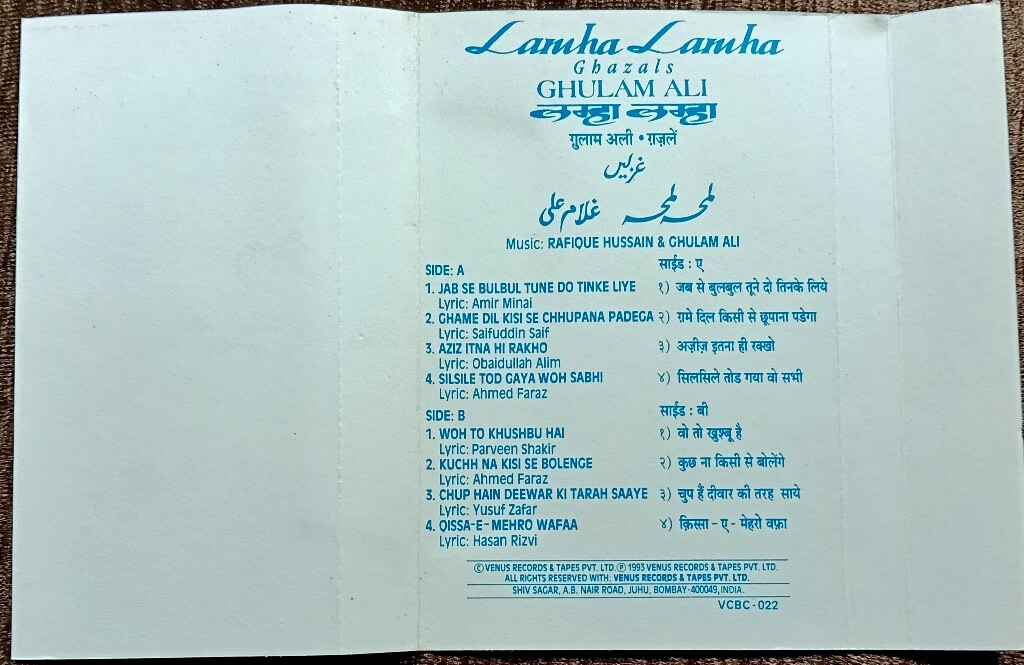 Lamha Lamha
Ghazals
GHULAM ALI
लम्हा लम्हा
ग़ुलाम अली • ग़ज़लें
غزلیں
لمحہ لمحہ غلام علی
Music: RAFIQUE HUSSAIN & GHULAM ALI
SIDE: A साईड : ए
1. JAB SE BULBUL TUNE DO TINKE LIYE १) जब से बुलबुल तूने दो तिनके लिये
Lyric: Amir Minai
2. GHAME DIL KISI SE CHHUPANA PADEGA २) ग़मे दिल किसी से छूपाना पडेगा
Lyric: Saifuddin Saif
3. AZIZ ITNA HI RAKHO ३) अज़ीज़ इतना ही रक्खो
Lyric: Obaidullah Alim
4. SILSILE TOD GAYA WOH SABHI ४) सिलसिले तोड गया वो सभी
Lyric: Ahmed Faraz
SIDE: B साईड : बी
1. WOH TO KHUSHBU HAI १) वो तो खुश्बू है
Lyric: Parveen Shakir
2. KUCHH NA KISI SE BOLENGE २) कुछ ना किसी से बोलेंगे
Lyric: Ahmed Faraz
3. CHUP HAIN DEEWAR KI TARAH SAAYE ३) चुप हैं दीवार की तरह साये
Lyric: Yusuf Zafar
4. QISSA-E-MEHRO WAFAA ४) क़िस्सा - ए - मेहरो वफ़ा
Lyric: Hasan Rizvi
© VENUS RECORDS & TAPES PVT. LTD. ℗ 1993 VENUS RECORDS & TAPES PVT. LTD.
ALL RIGHTS RESERVED WITH: VENUS RECORDS & TAPES PVT. LTD.
SHIV SAGAR, A.B. NAIR ROAD, JUHU, BOMBAY-400049, INDIA.
VCBC-022